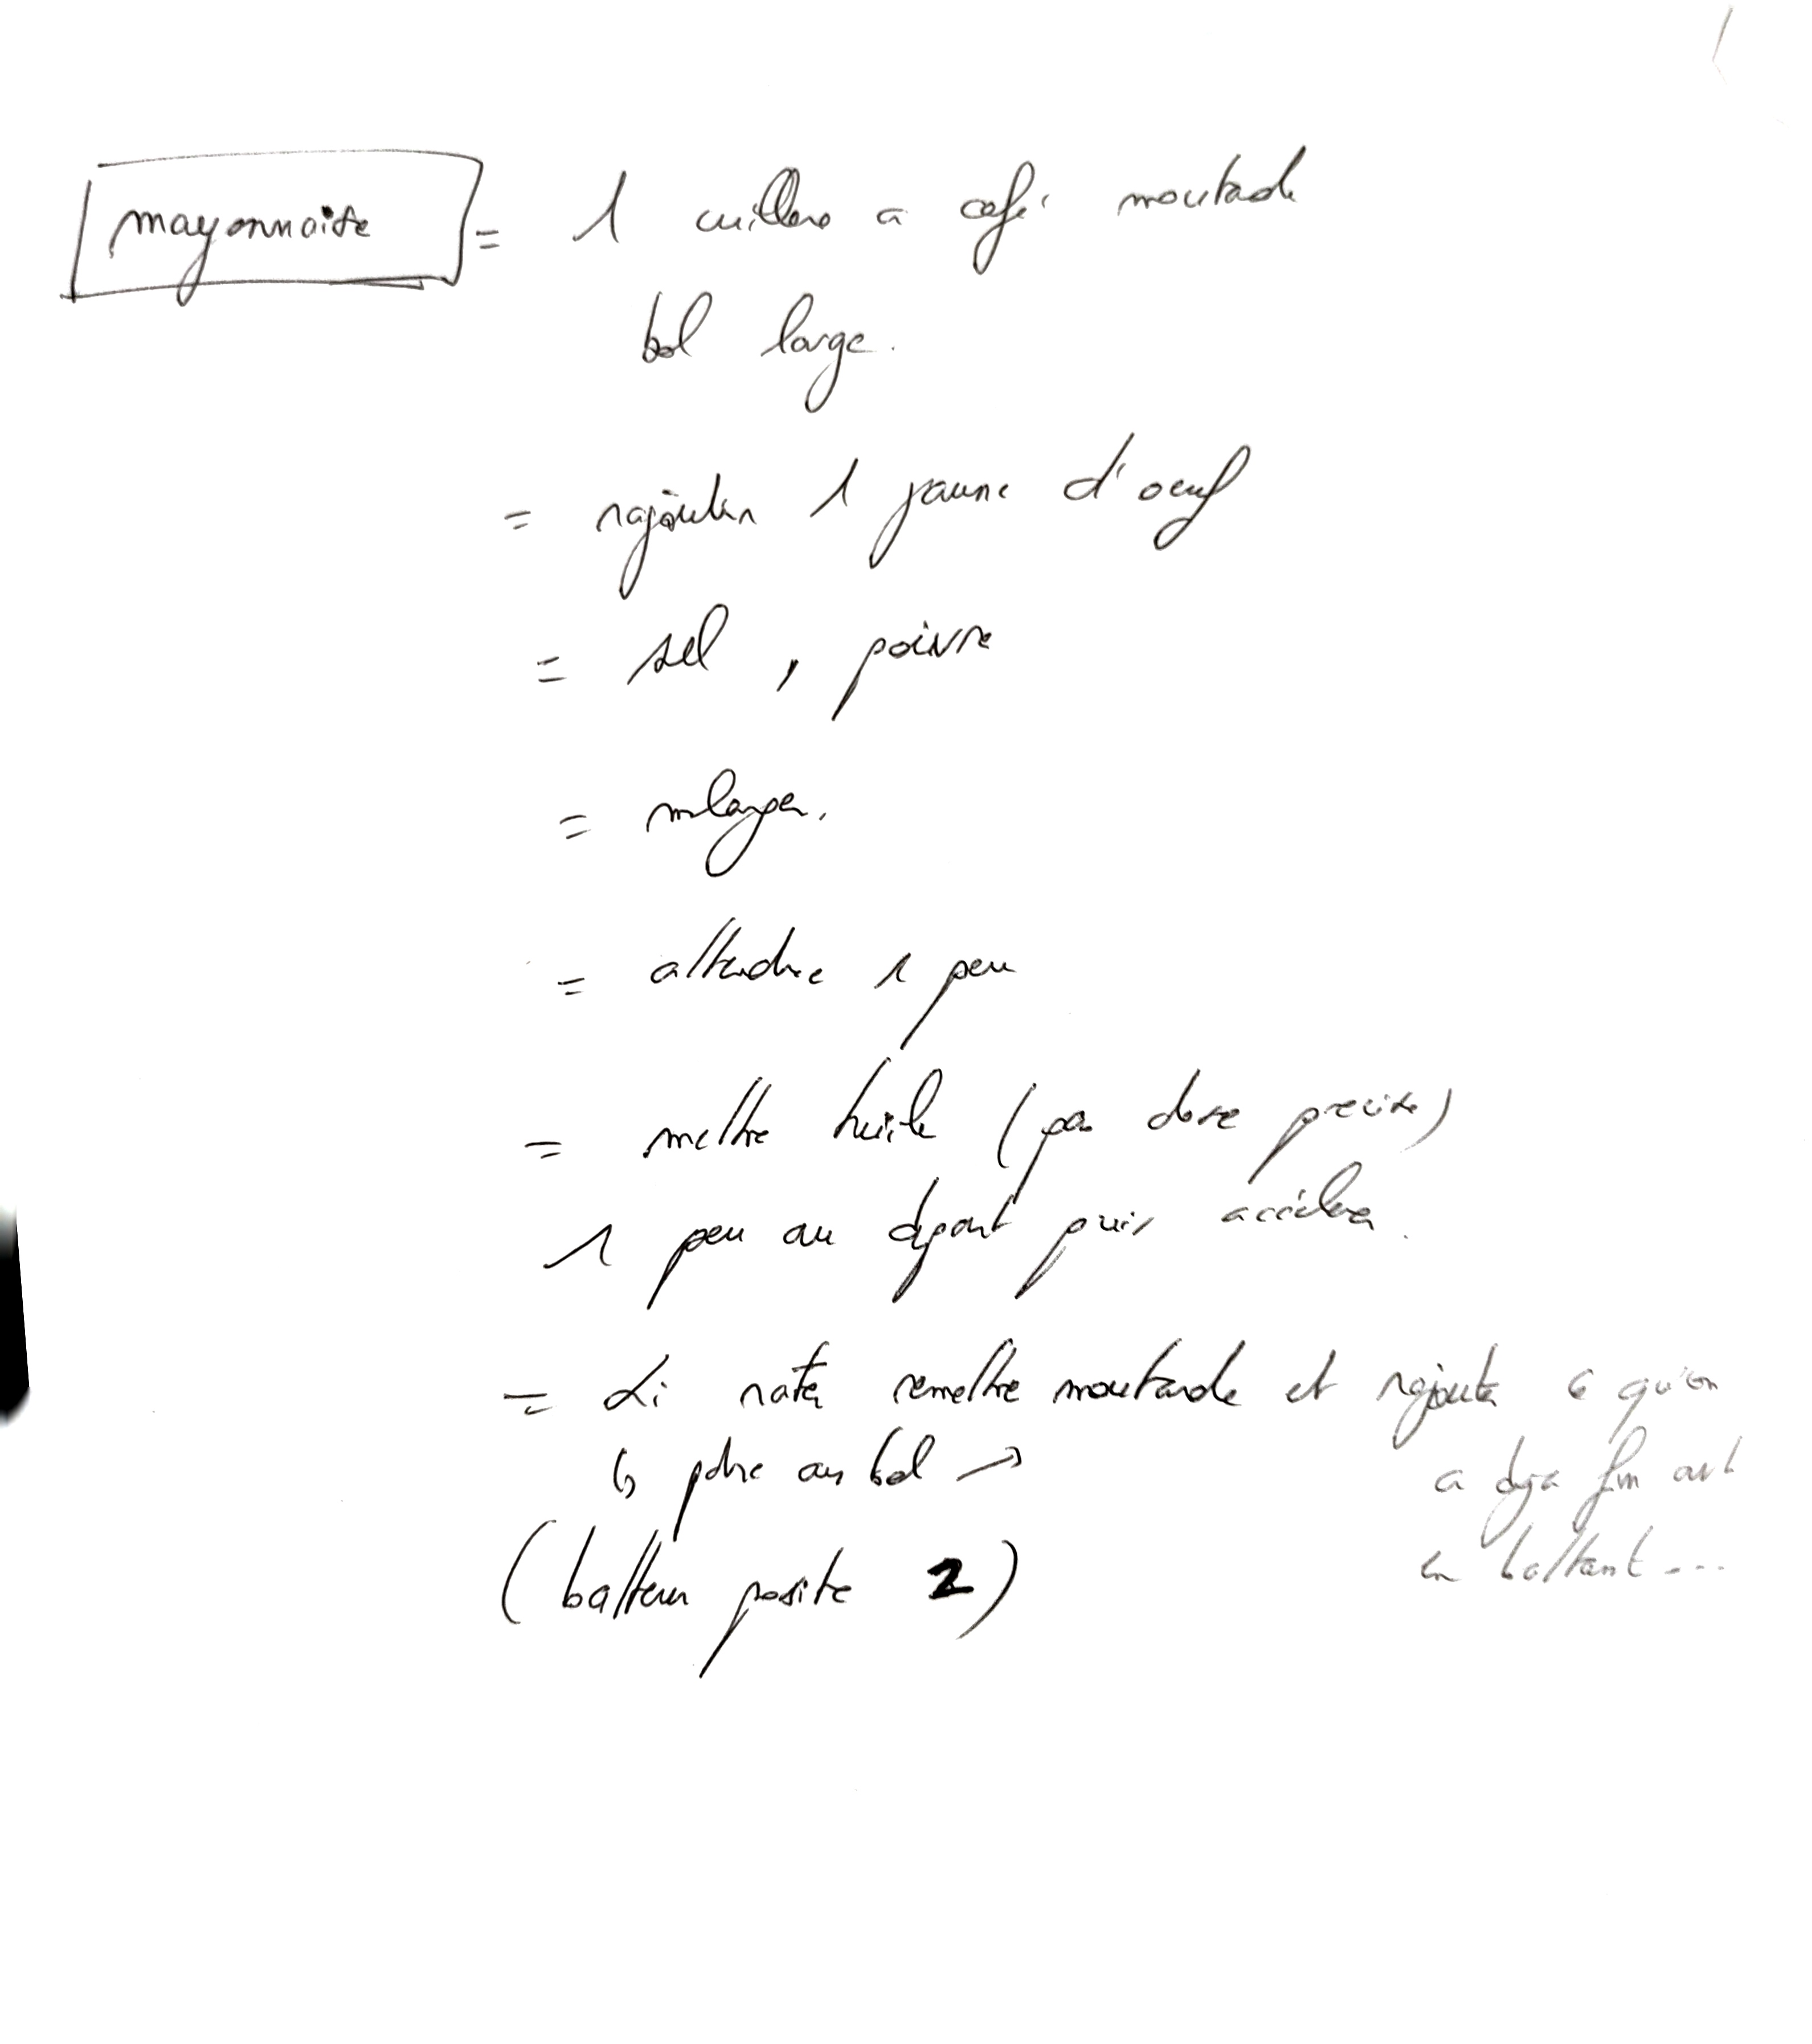 mayonnaise = 1 cuillere a café moutarde
bol large.
= rajouter 1 jaune d'oeuf
= sel, poivre
= mlanger.
= attendre 1 peu
= mettre huile (pas dose precise)
1 peu au dpart puis accélerer.
= Si ratée remettre moutarde et rajouter ce qu'on
a deja fini avt
en battant ...
↳ autre bol →
(batteur position 2)